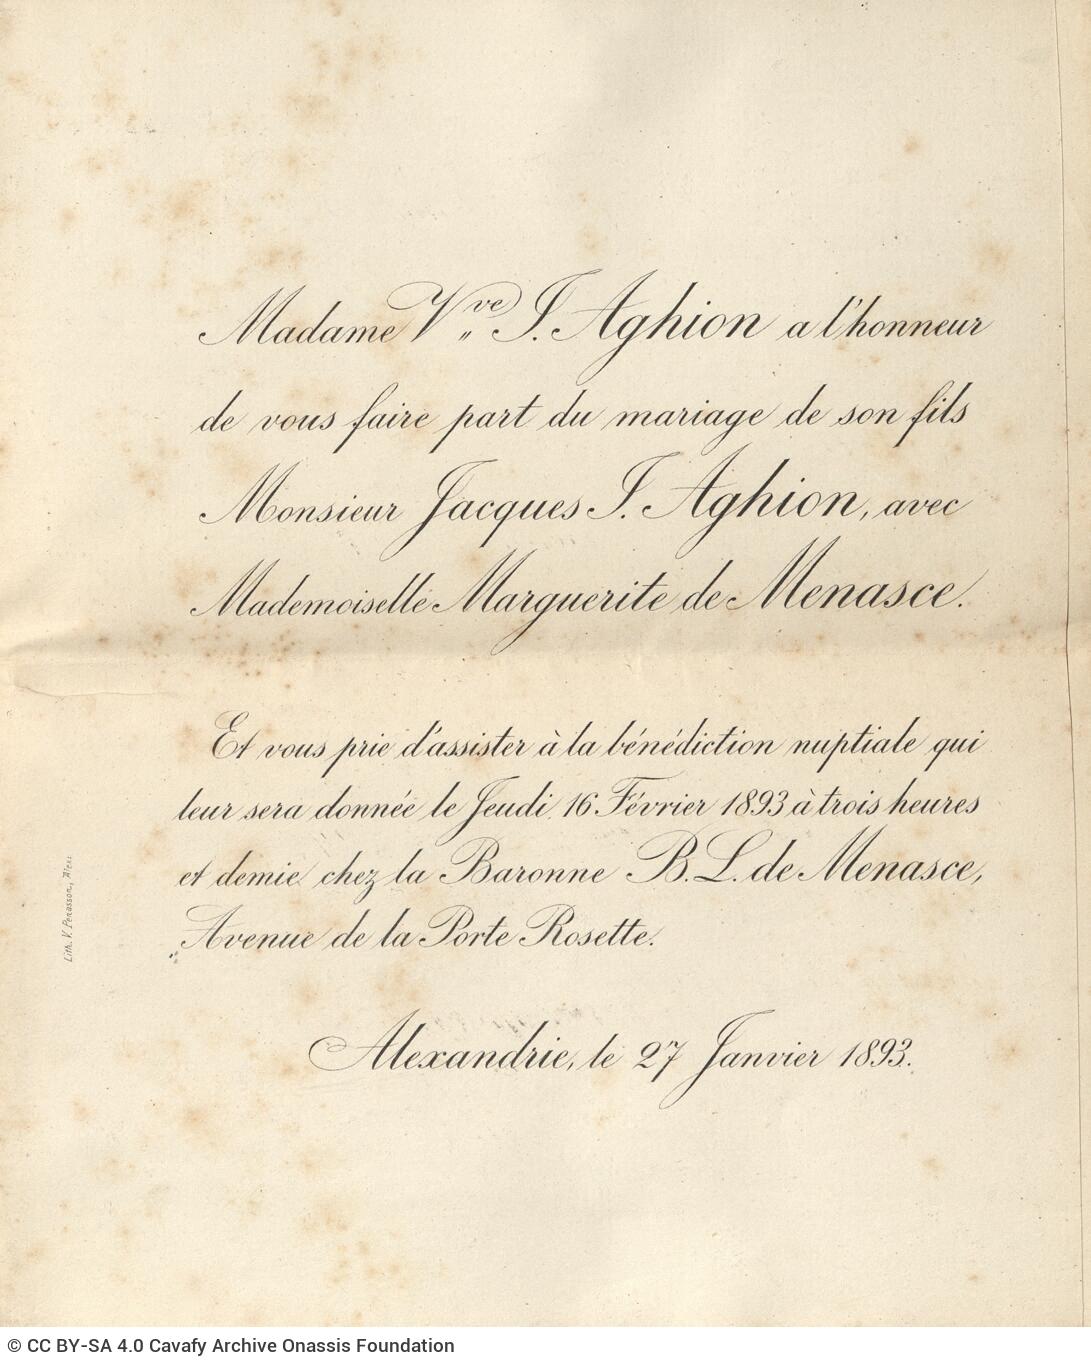 Madame Vve I. Aghion a l'honneur
de vous faire part du mariage de son fils
Monsieur Jacques I. Aghion, avec
Mademoiselle Marguerite de Menasce.
Et vous prie d'assister à la bénédiction nuptiale qui
leur sera donnée le Jeudi 16 Février 1893 à trois heures
et demie chez la Baronne B. L. de Menasce,
Avenue de la Porte Rosette.
Alexandrie, le 27 Janvier 1893.
Lith. V. Penasson, Alex.
© CC BY-SA 4.0 Cavafy Archive Onassis Foundation